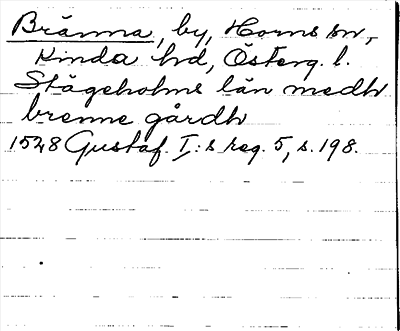 Bränna, by, Horns sn,
Kinda hd, Österg. l.
Stägeholms län medh
brenne gårdh
1528 Gustaf I:s reg. 5, s. 198.